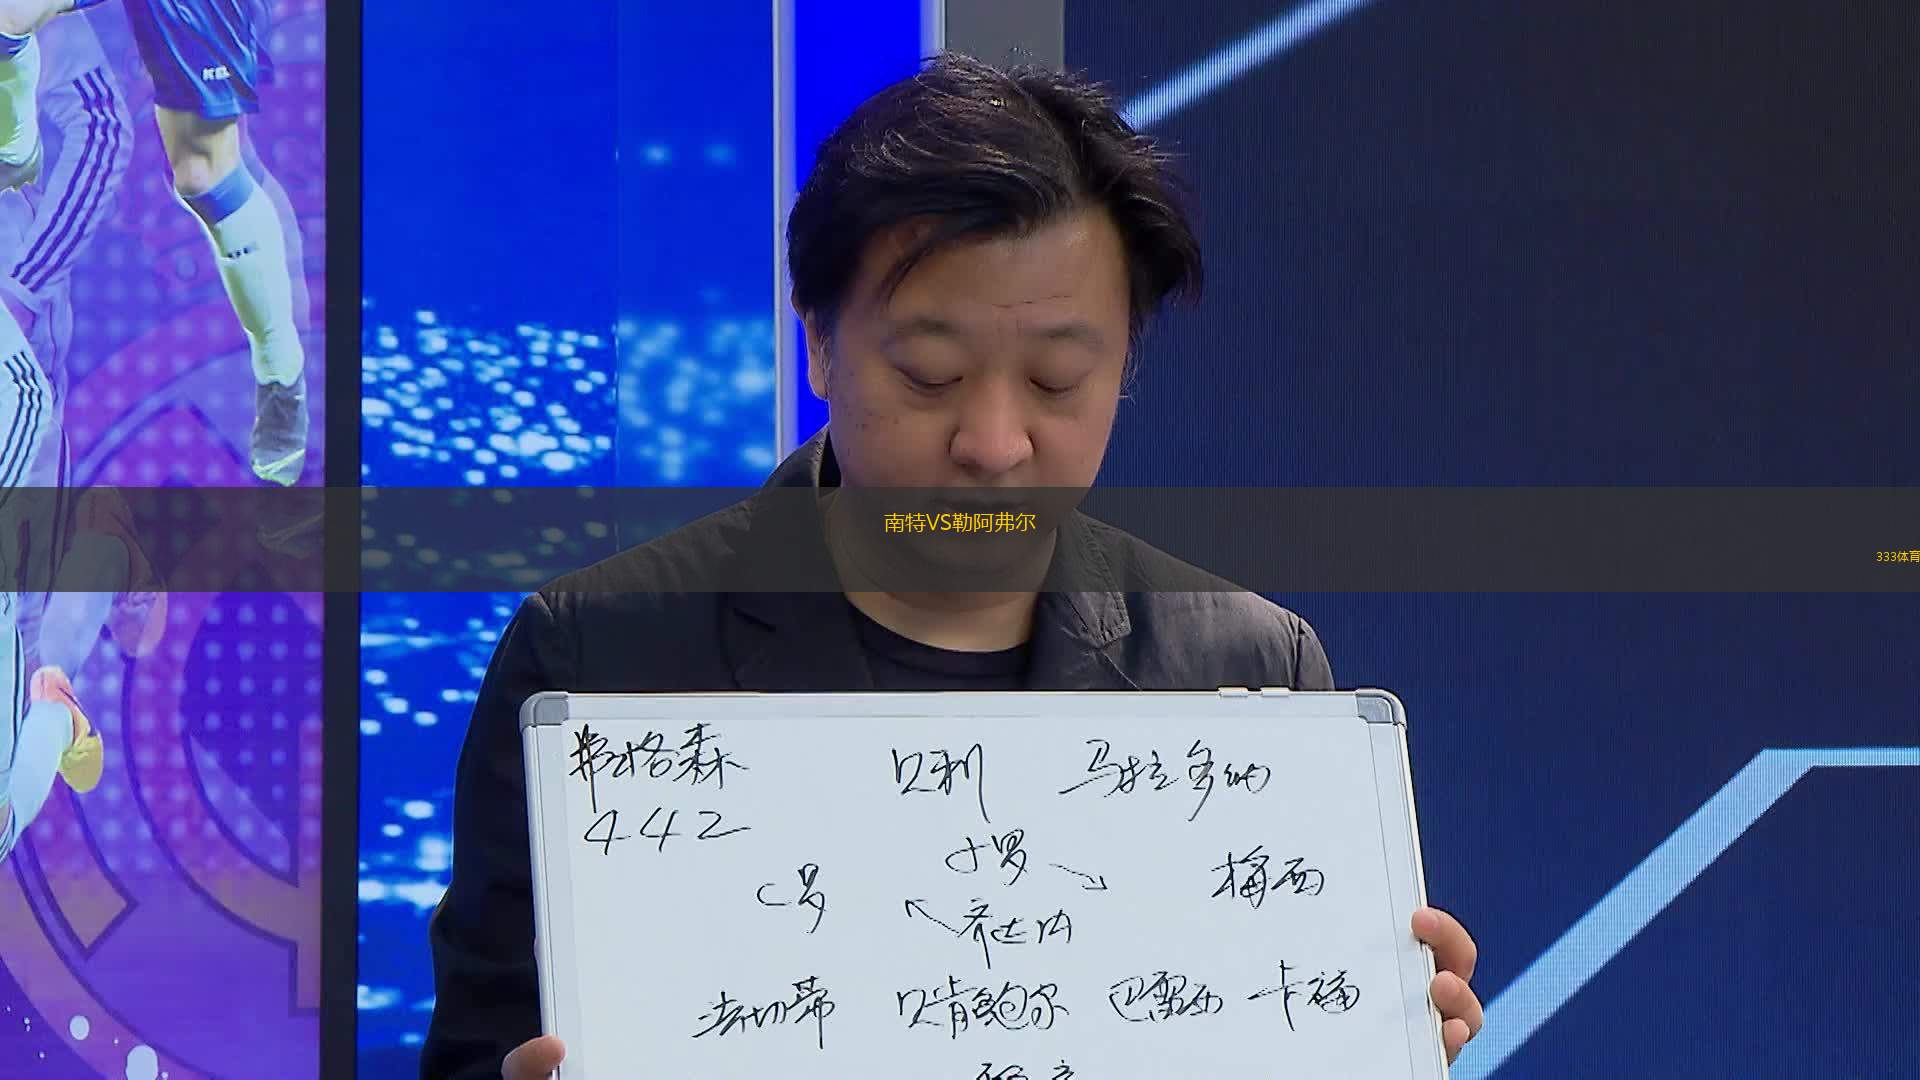 南特VS勒阿弗尔
333体育
弗格森 贝利 马拉多纳
442
小罗
C罗 梅西
齐达内
法切蒂 贝肯鲍尔 巴雷西 卡福